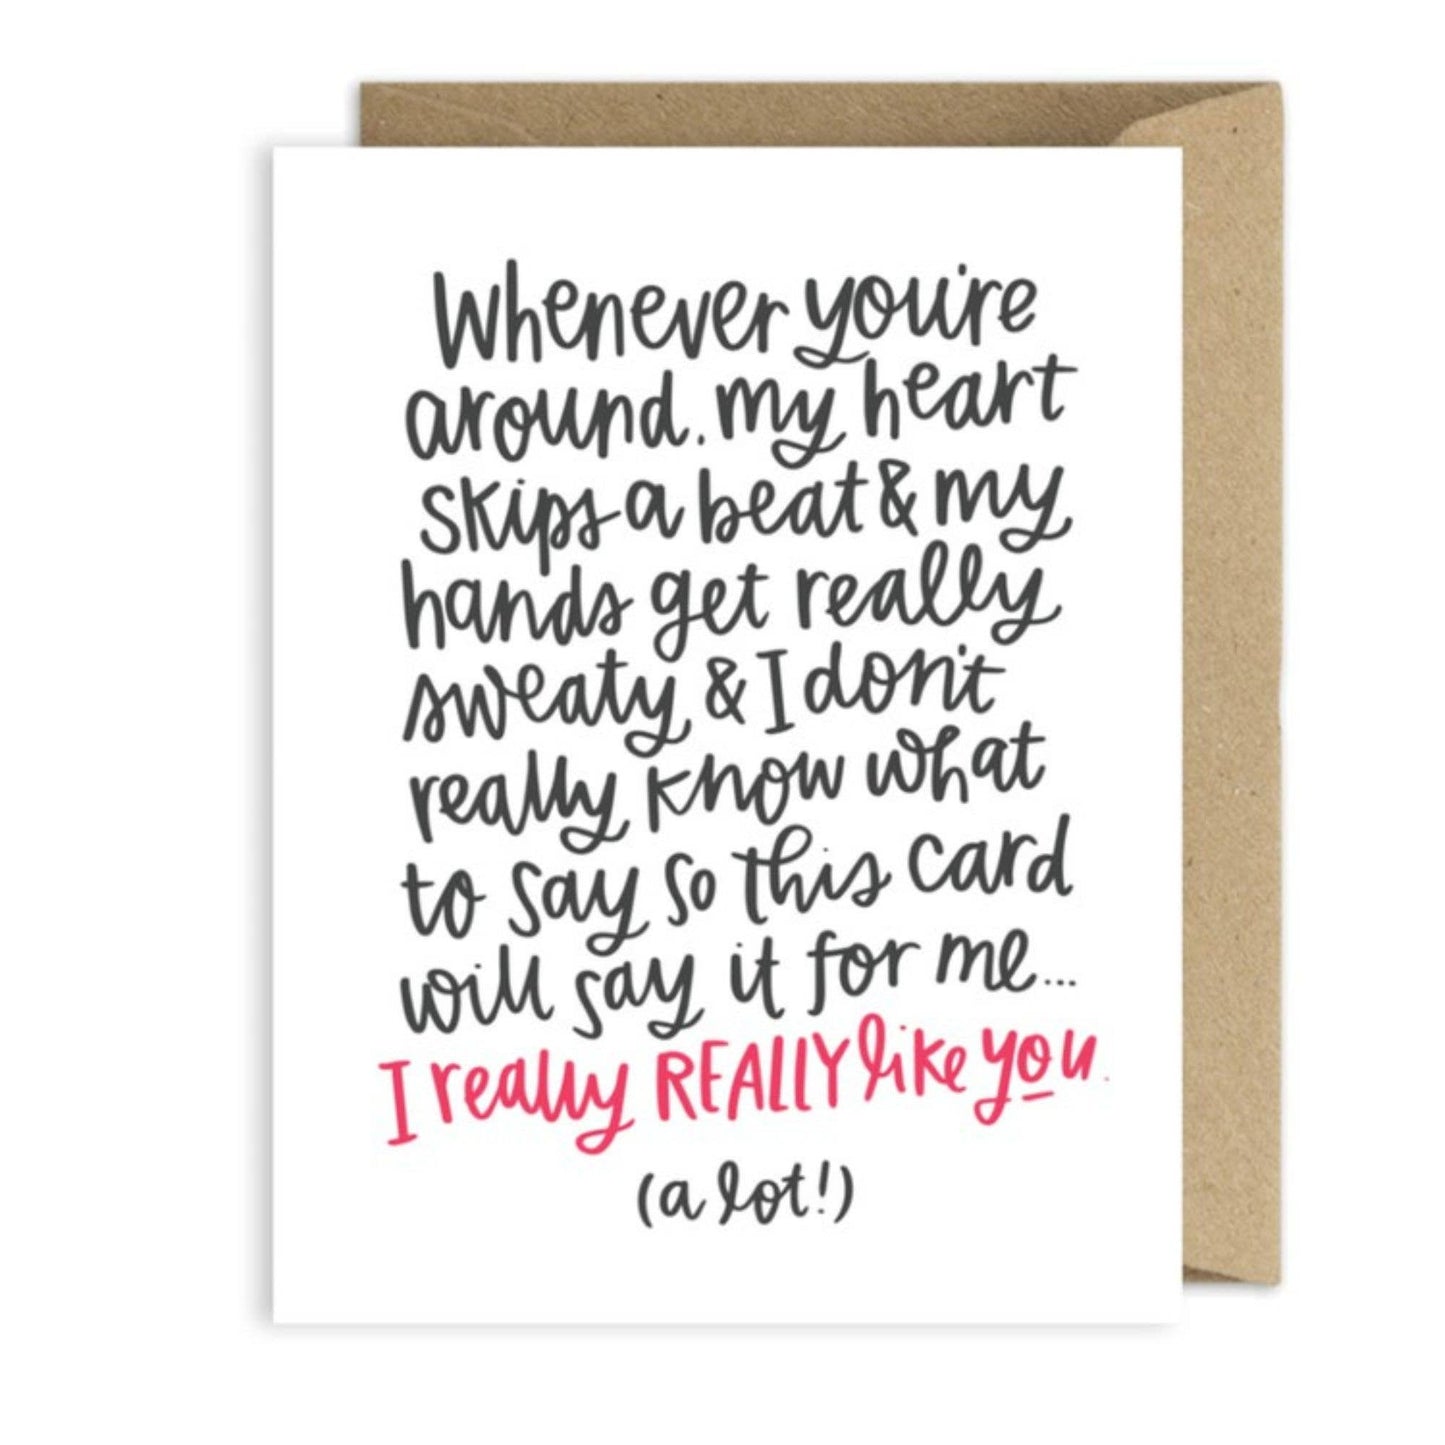 Whenever you're
around, my heart
skips a beat & my
hands get really
sweaty & I don't
really know what
to say so this card
will say it for me...
I really REALLY like you.
(a lot!)